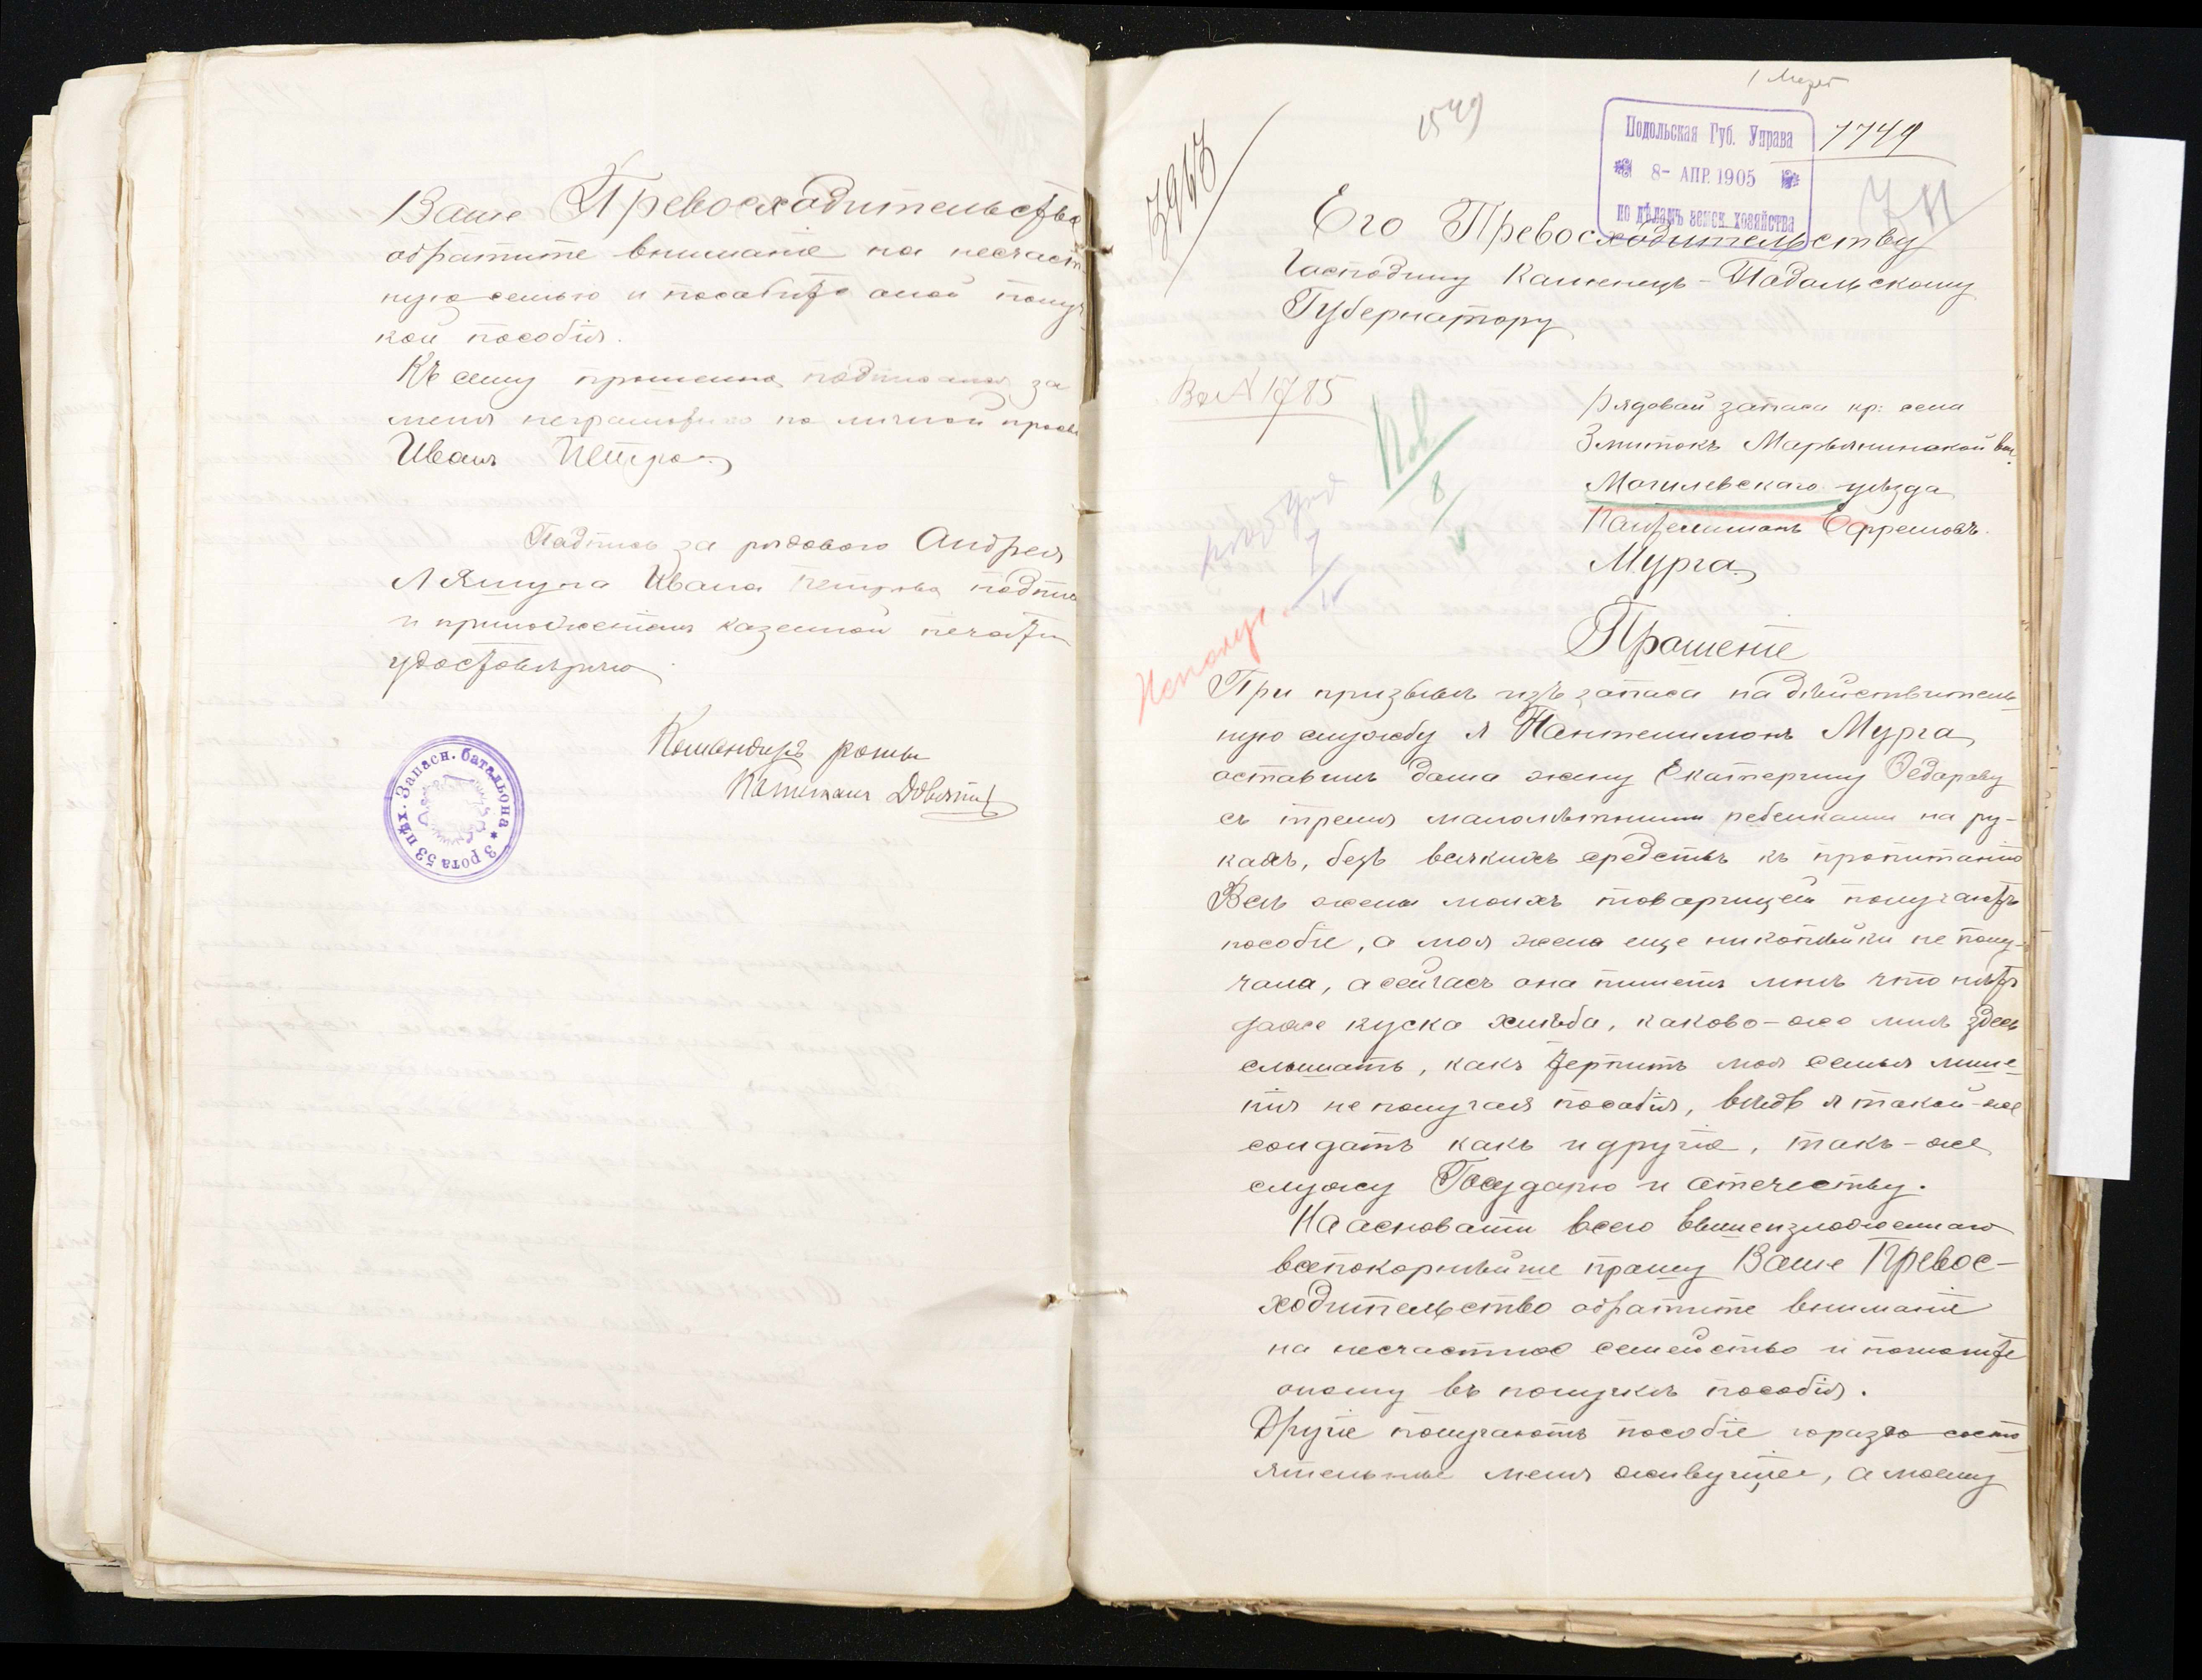 Ваше Превосходительство
обратите вниманіе на несчаст
ную семью и пособите оной получ
кой пособія.
Къ сему прошенію подписался за
меня неграмотнаго по личной просьб
Иванъ Петровъ
Подпись за рядового Андрея
Лямуга Ивана Петрова подпис
и приложеніемъ казенной печати
удостовѣряю
Командиръ роты
Капитанъ
3 рота 53 пѣх. Запасн. баталіона
1549
7749
Подольская Губ. Управа
8- АПР. 1905
по дѣламъ земск. хозяйства
Его Превосходительству
Господину Каменецъ-Подольскому
Губернатору
Рядовой запаса кр: села
Змитокъ Марьянинской вол.
Могилевскаго уѣзда
Пантелимонъ Ефремовъ
Мурга
8
Прошеніе
При призывѣ изъ запаса на дѣйствитель
ную службу я Пантелимонъ Мурга
оставилъ дома жену Екатерину Федорову
съ тремя малолѣтними ребенками на ру-
кахъ, безъ всякихъ средствъ къ пропитанію
Всѣ жены моихъ товарищей получаютъ
пособіе, а моя жена еще ни копѣйки не полу-
чала, а сейчасъ она пишетъ мнѣ что нѣтъ
даже куска хлѣба, каково-же мнѣ здесь
слышать, какъ терпитъ моя семья лише-
нія не получая пособія, вѣдь я такой-же
солдатъ какъ и другіе, такъ-же
служу Государю и отечеству.
На основаніи всего вышеизложеннаго
всепокорнѣйше прошу Ваше Превос-
ходительство обратите вниманіе
на несчастное семейство и помогите
оному въ получкѣ пособія.
Другіе получаютъ пособіе гораздо состо
ятельнѣе меня живущіе, а моему